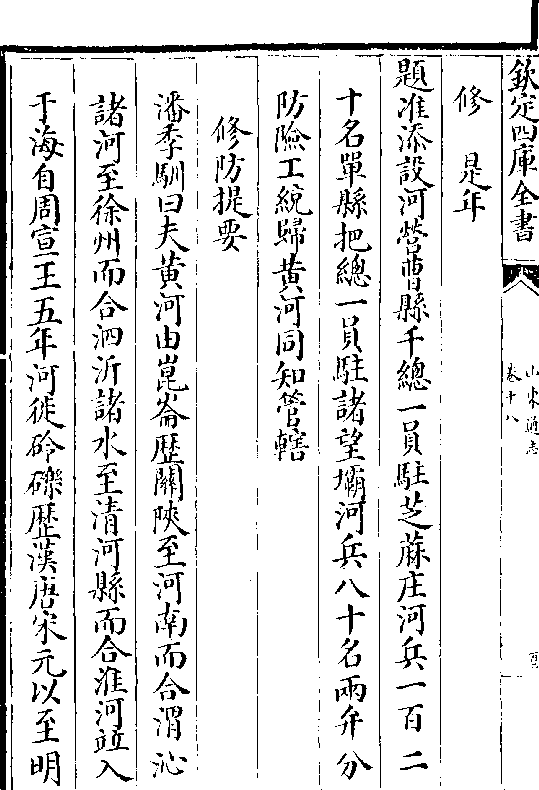 欽定四庫全書
山東通志
卷十八
修 是年
題准添設河營曹縣千總一員駐芝蔴庄河兵一百二
十名單縣把總一員駐諸望壩河兵八十名兩弁分
防險工統歸黄河同知管轄
修防提要
潘季馴曰夫黄河由崑崙歷關陜至河南而合渭沁
諸河至徐州而合泗沂諸水至清河縣而合淮河竝入
于海自周宣王五年河徙砱礫歷漢唐宋元以至明